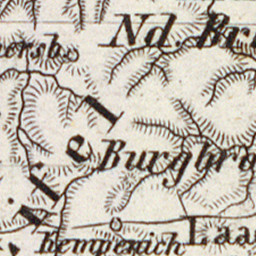 Nd. Br
ersb.
Burgbro
Kempenich
Laa